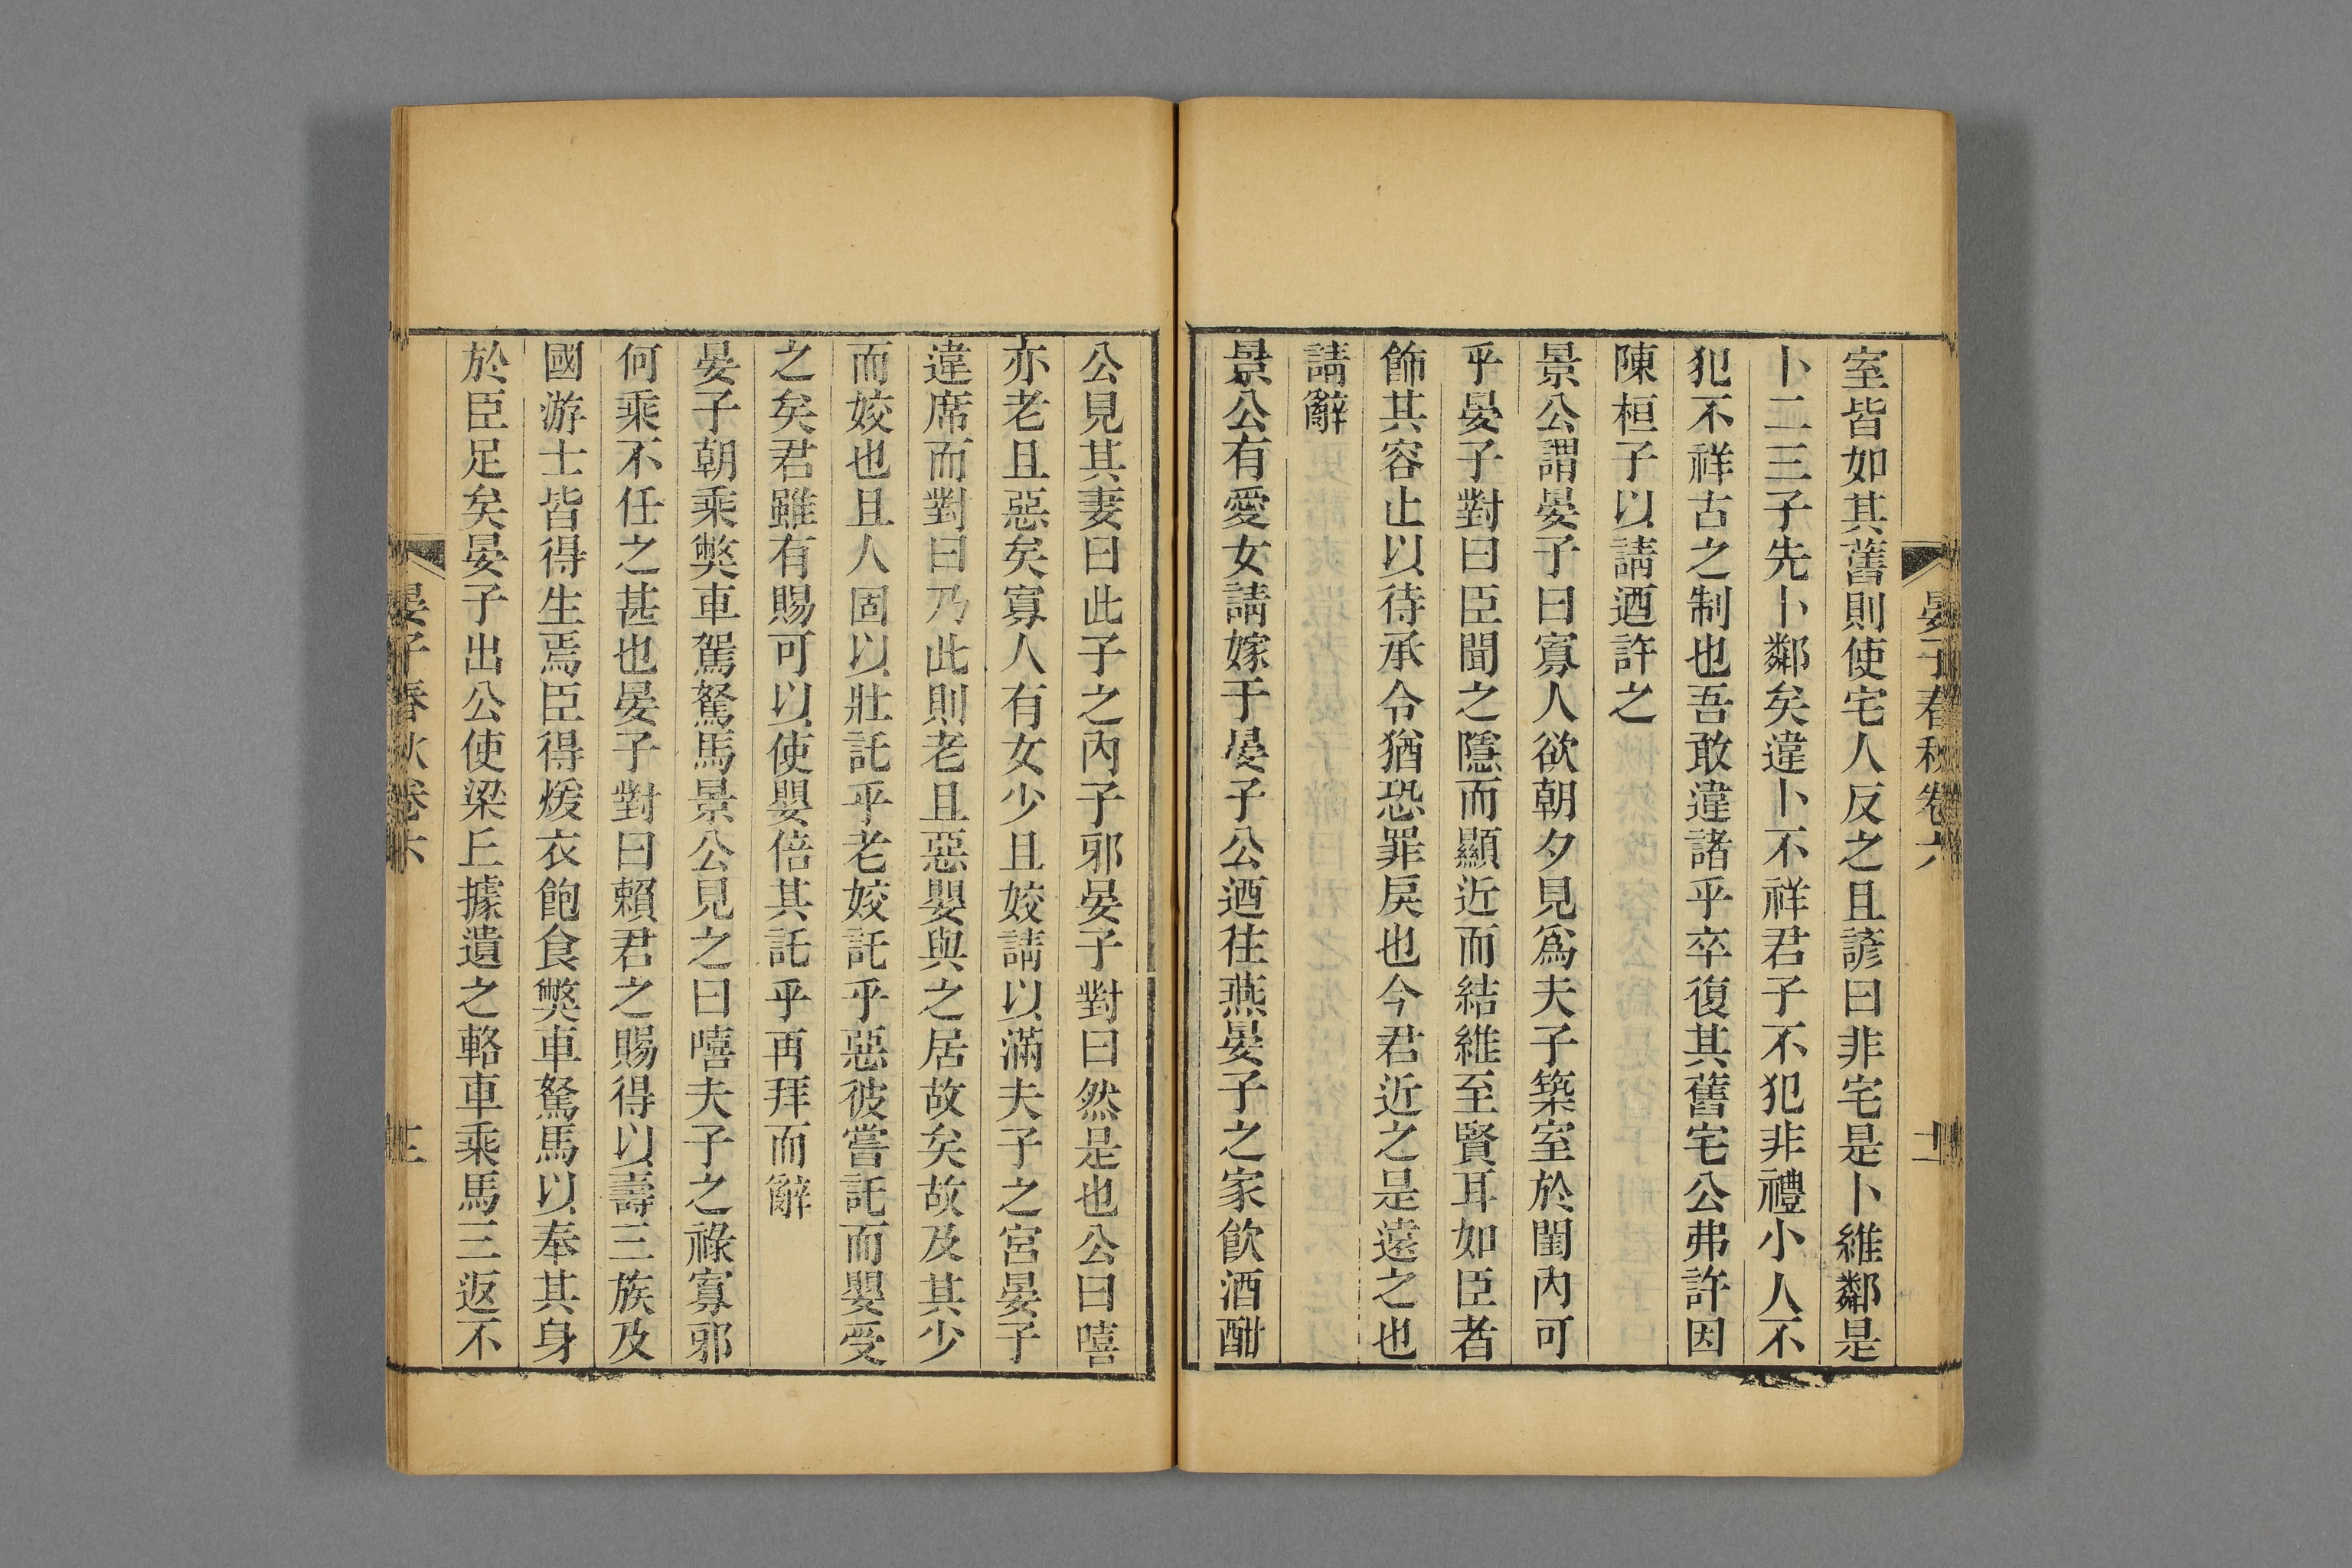 晏子春秋卷六
室皆如其舊則使宅人反之且諺曰非宅是卜維鄰是
卜二三子先卜鄰矣違卜不祥君子不犯非禮小人不
犯不祥古之制也吾敢違諸乎卒復其舊宅公弗許因
陳桓子以請迺許之
景公謂晏子曰寡人欲朝夕見爲夫子築室於閨內可
乎晏子對曰臣聞之隱而顯近而結維至賢耳如臣者
飾其容止以待承令猶恐罪戾也今君近之是遠之也
請辭
景公有愛女請嫁于晏子公迺往燕晏子之家飮酒酣
公見其妻曰此子之內子邪晏子對曰然是也公曰嘻
亦老且惡矣寡人有女少且姣請以滿夫子之宮晏子
違席而對曰乃此則老且惡嬰與之居故矣故及其少
而姣也且人固以壯託乎老姣託乎惡彼嘗託而嬰受
之矣君雖有賜可以使嬰倍其託乎再拜而辭
晏子朝乘獘車駕駑馬景公見之曰嘻夫子之祿寡邪
何乘不任之甚也晏子對曰賴君之賜得以壽三族及
國游士皆得生焉臣得煖衣飽食獘車駑馬以奉其身
於臣足矣晏子出公使梁丘據遺之輅車乘馬三返不
晏子春秋卷六